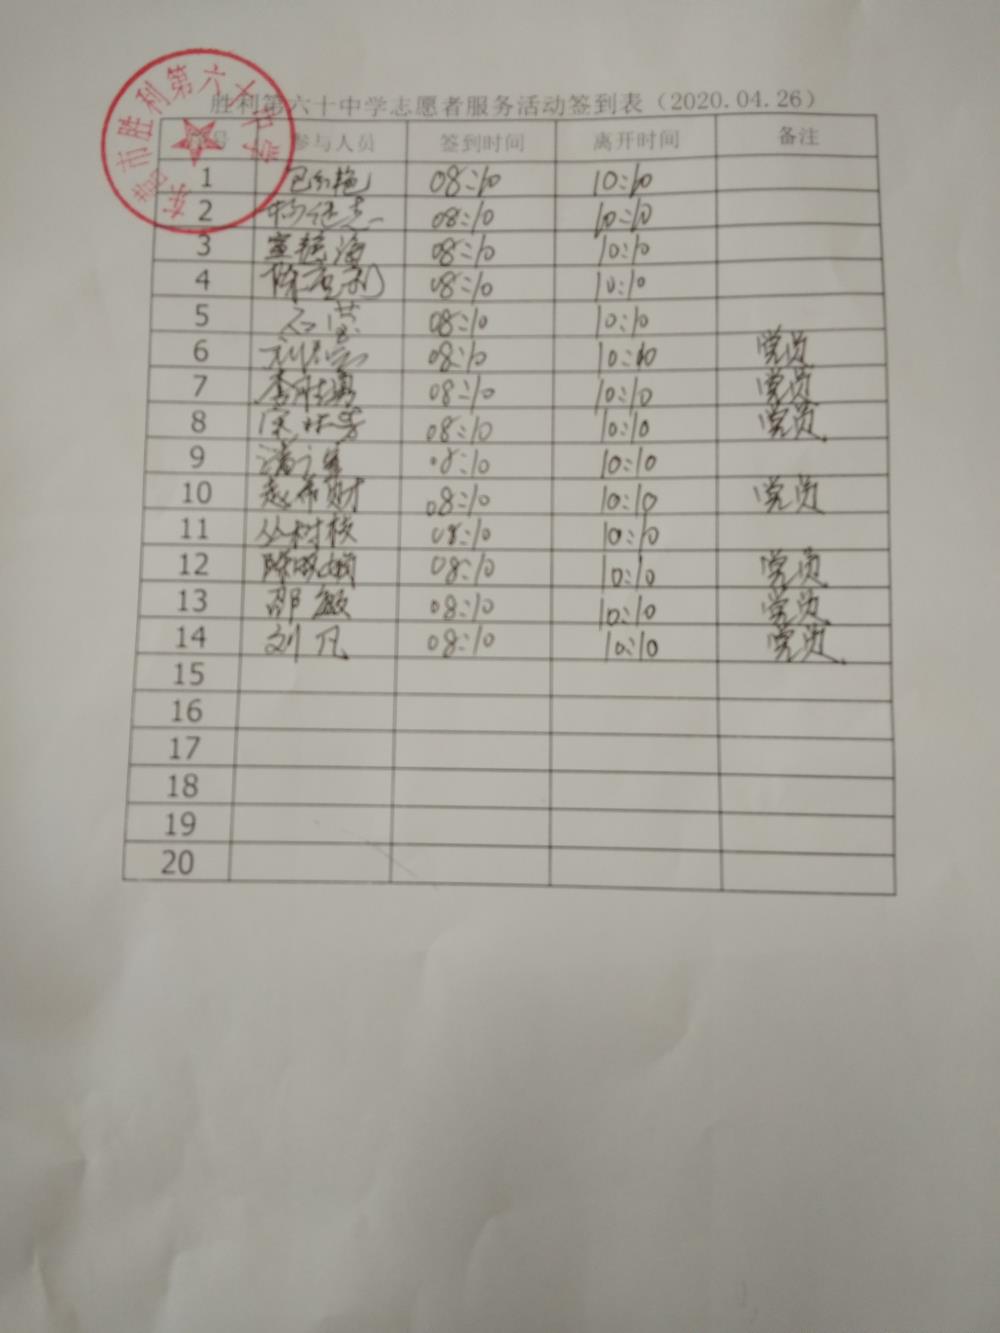 东营市胜利第六十中学
胜利第六十中学志愿者服务活动签到表（2020.04.26）
号 参与人员 签到时间 离开时间 备注
1 08:10 10:10
2 08:10 10:10
3 08:10 10:10
4 08:10 10:10
5 08:10 10:10
6 08:10 10:10 党员
7 李胜勇 08:10 10:10 党员
8 08:10 10:10 党员
9 08:10 10:10
10 赵希财 08:10 10:10 党员
11 丛树枝 08:10 10:10
12 陈晓娥 08:10 10:10 党员
13 邵敏 08:10 10:10 党员
14 刘凡 08:10 10:10 党员
15
16
17
18
19
20